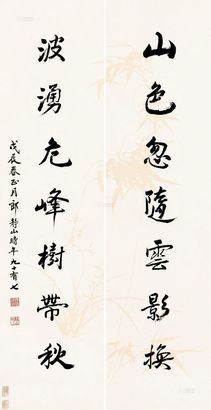 山色忽隨雲影換
波湧危峰樹帶秋
戊辰春正月郎靜山時年九十有七